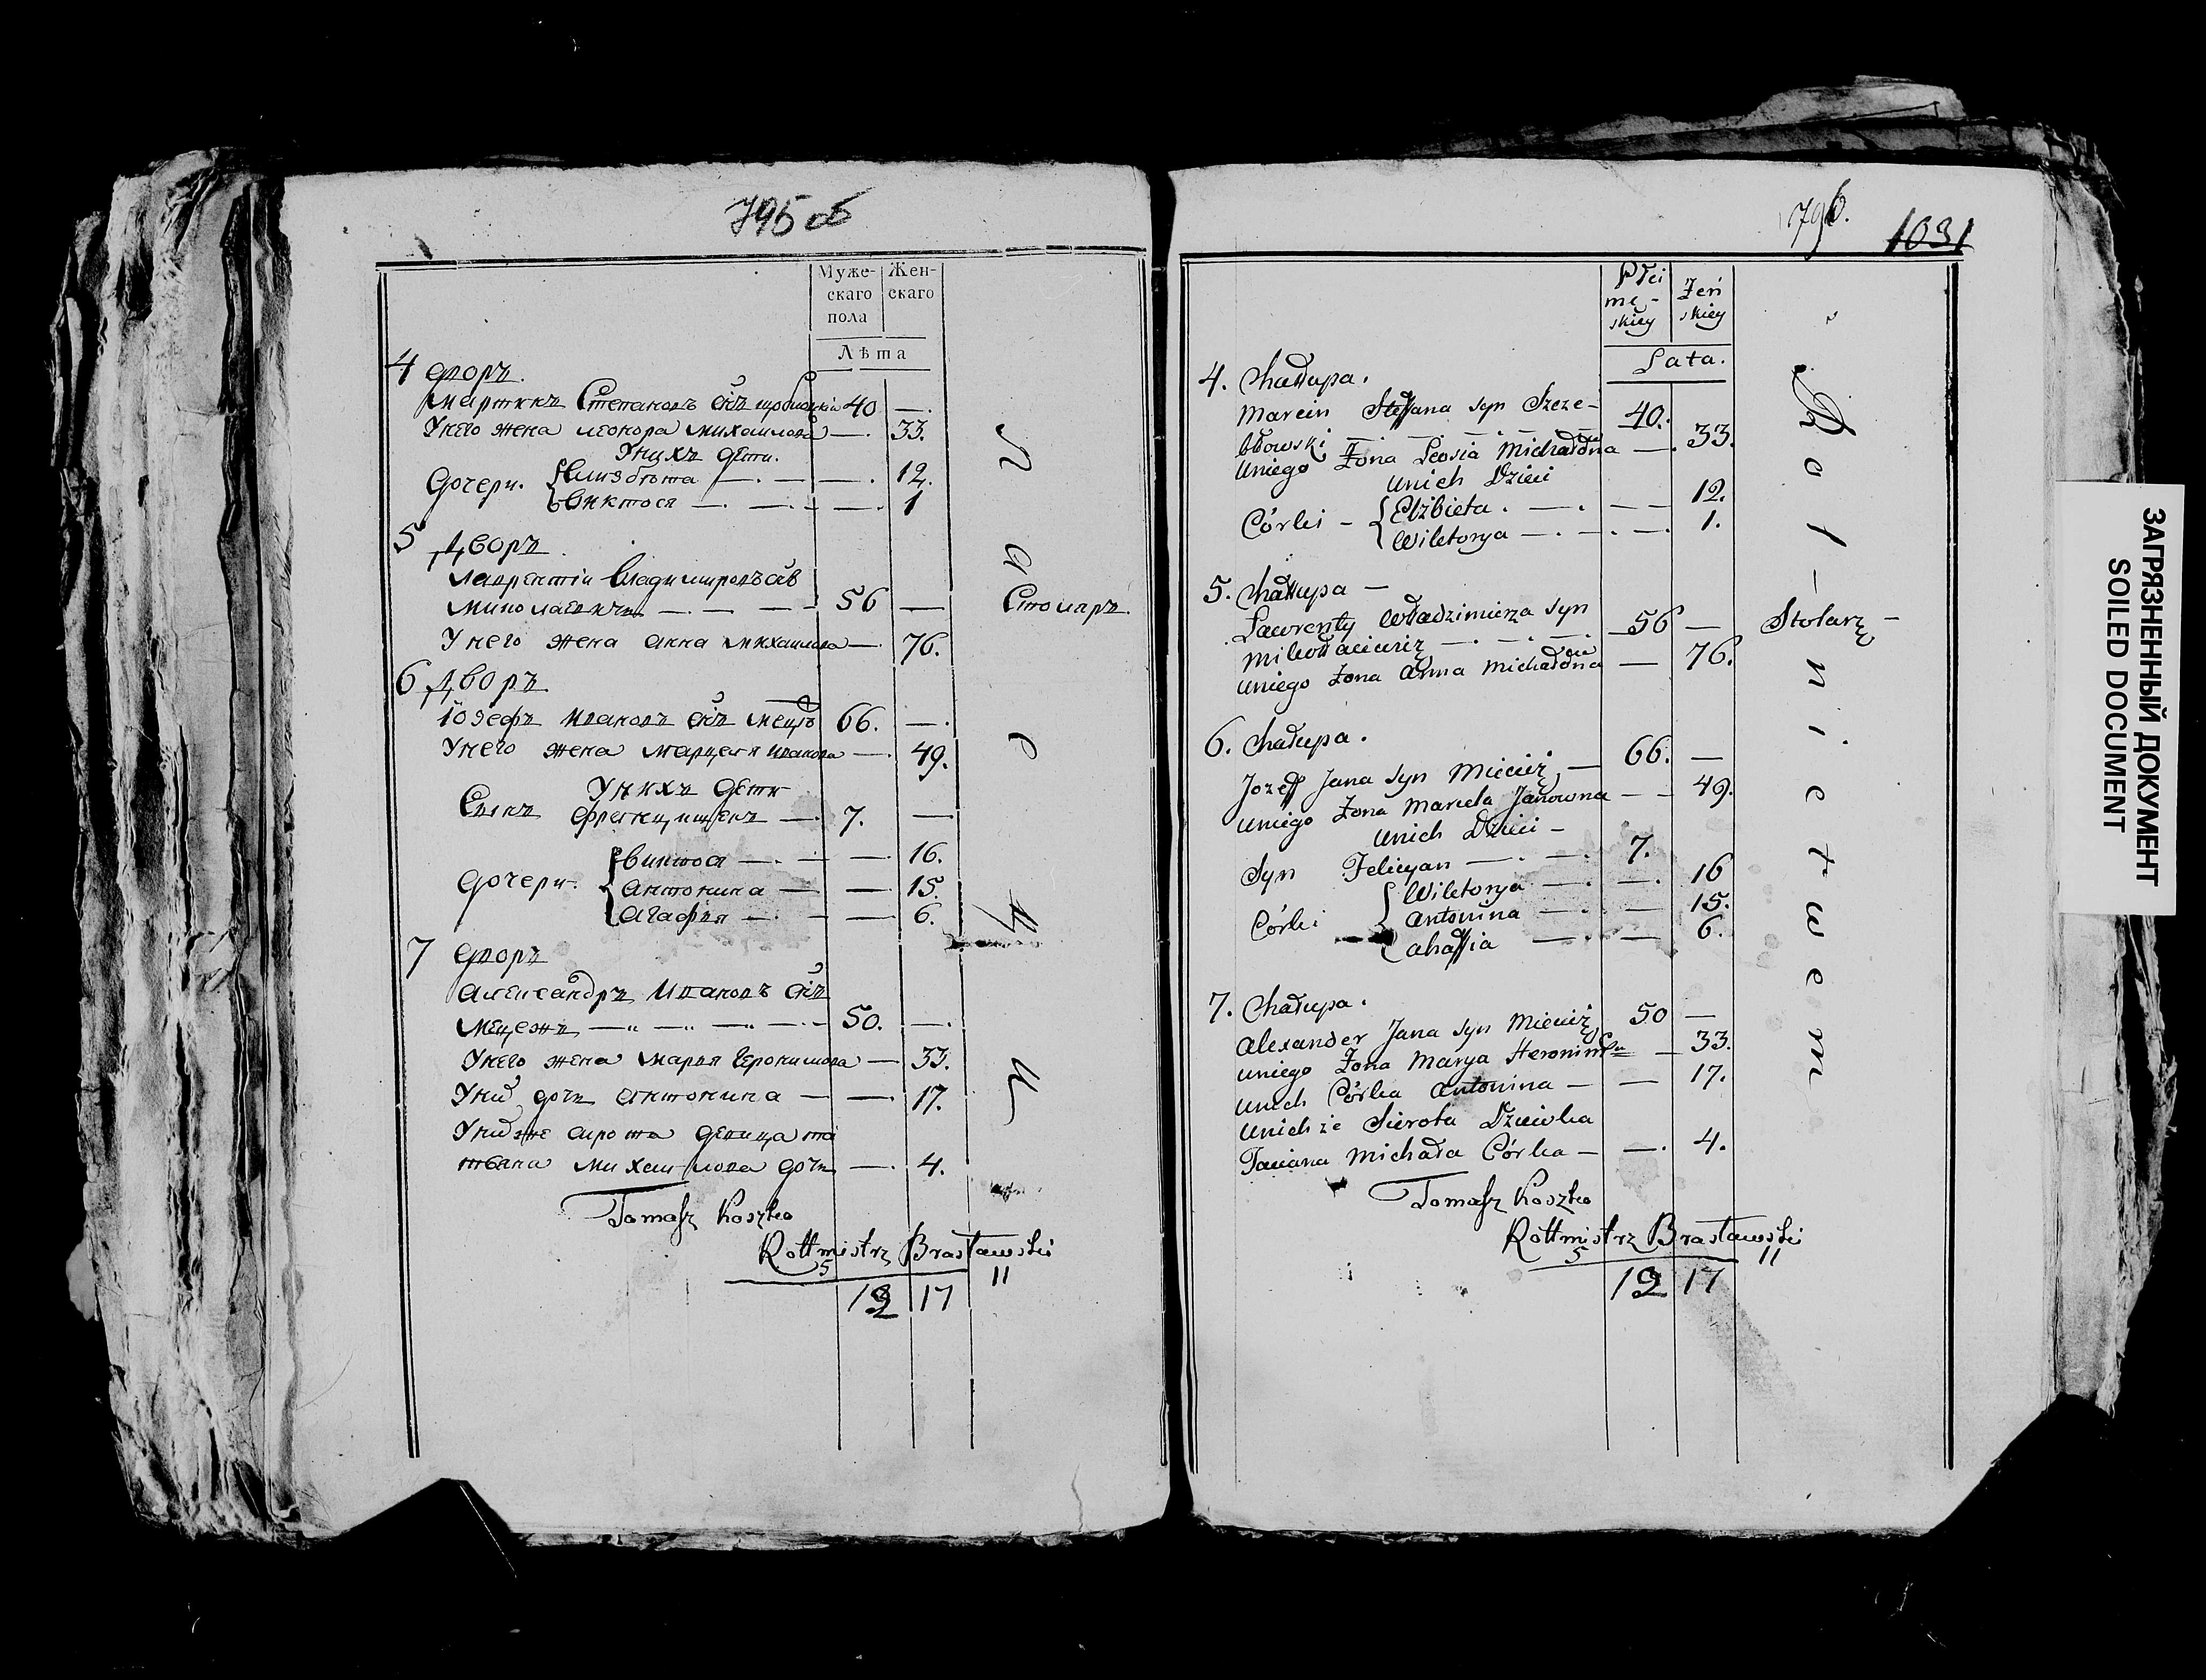 795 об
Муже- Жен-
скаго скаго
пола
Лѣта
4 дворъ.
Мартинъ Степановъ снъ 40 —.
Унего жена Леонора Михаилова —. 33.
Унихъ дети.
Дочери. Елизбѣта —. — —. 12.
Виктося —. —. — —. 1
5 Дворъ
Лаврентіи Владимировъ снъ
Миколаевичъ —. — — — 56 —
Столяръ.
Унего жена Анна Михаилова —. 76.
6 Дворъ
Іозефъ Ивановъ снъ 66. —.
Унего жена Марцеля Иванова —. 49.
Унихъ дети
Сынъ Францишекъ —. 7. —
Дочери. Виктося —. — — 16.
Антонина — — 15.
Агафия —. — — 6.
7 дворъ
Александръ Ивановъ снъ
Мецежъ —„ —„ —„ —. — 50. —.
Унего жена Марья Геронимова — 33.
Уних дочь Антонина — — 17.
Унихже сирота девица Та
тяна Михаилова дочь —. 4.
Tomasz Koszko
Rottmistrz Brasławski
5 11
12 17
Л
а
с
ц
и
796.
1031
Płci Żeń
mę- skiey
skiey
Lata.
4. Chałupa.
Marcin Steffana syn Szcze- 40.
błowski — — — —
Uniego Żona Leosia Michałowna —. 33.
Unich Dzieci
Córki - Elżbieta. —. — — 12.
Wiktorya —. —. —. 1.
5. Chałupa —
Lawrenty Władzimierza syn
Mikołaiewicz —. —. —. 56 —
Stolarz —
Uniego Żona Anna Michałowna — 76.
6. Chałupa.
Jozeff Jana syn Miecież, — 66. —
Uniego Żona Marcela Janowna — — 49.
Unich Dzieci —
Syn Felicyan —. —. 7.
Córki Wiktorya —. —. 16
Antonina —. — 15.
Ahaffia —. — 6.
7. Chałupa.
Alexander Jana syn Miecież 50 —
Uniego Żona Marya Heronim — 33.
Unich Córka Antonina — — 17.
Unichże Sierota Dziewka
Taciana Michała Córka — —. 4.
Tomasz Koszko
Rottmistrz Brasławski
5 11
12 17
R
o
l
–
n
i
c
t
w
e
m
ЗАГРЯЗНЕННЫЙ ДОКУМЕНТ
SOILED DOCUMENT